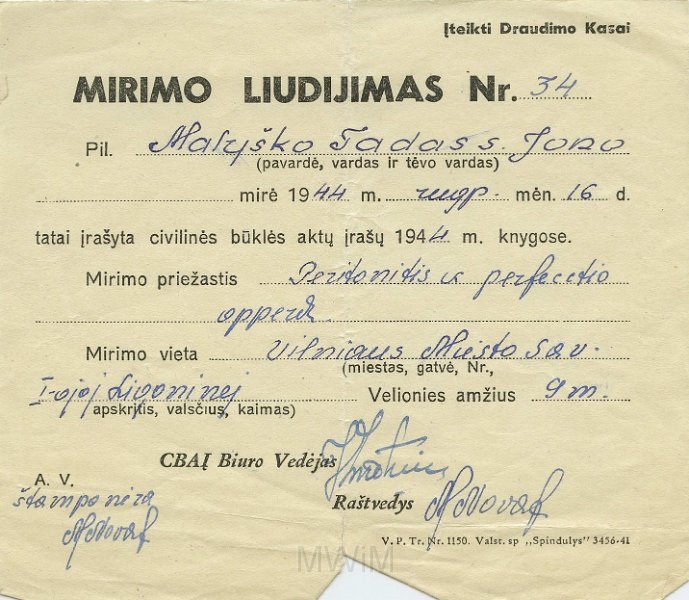 Įteikti Draudimo Kasai
MIRIMO LIUDIJIMAS Nr. 34
Pil. Malyško Tadas s. Jono
(pavardė, vardas ir tėvo vardas)
mirė 1944 m. rugp. mėn. 16 d.
tatai įrašyta civilinės būklės aktų įrašų 1944 m. knygose.
Mirimo priežastis Peritonitis
Mirimo vieta Vilniaus Miesto Sav.
(miestas, gatvė, Nr.,
I-ojoj Ligoninėj Velionies amžius 9 m.
apskritis, valsčius, kaimas)
CBAĮ Biuro Vedėjas
A. V.
štampo nėra
Raštvedys
V. P. Tr. Nr. 1150. Valst. sp „Spindulys" 3456-41
MWiM